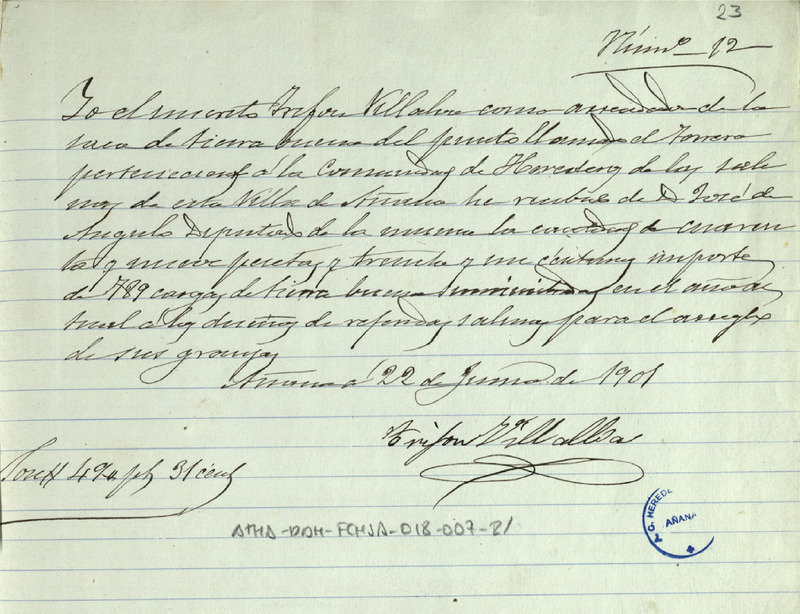 23
Núm.º 12
Yo el suscrito Trifon Villalba como arrendador de la
saca de tierra buena del punto llamado el Torrero
perteneciente á la Comunidad de Herederos de las sali
nas de esta Villa de Añana he recibido de D José de
Angulo Diputado de la misma la cantidad de cuaren
ta y nueve pesetas y treinta y un céntimos importe
de 789 cargas de tierra buena suministradas en el año ac
tual a los dueños de referidas salinas para el arreglo
de sus granjas
Añana á 22 de Junio de 1901
Trifon Villalba
Son # 49 pts 31 cent
ATHA-DAH-FCHSA-018-007-21
C. HEREDE
AÑANA